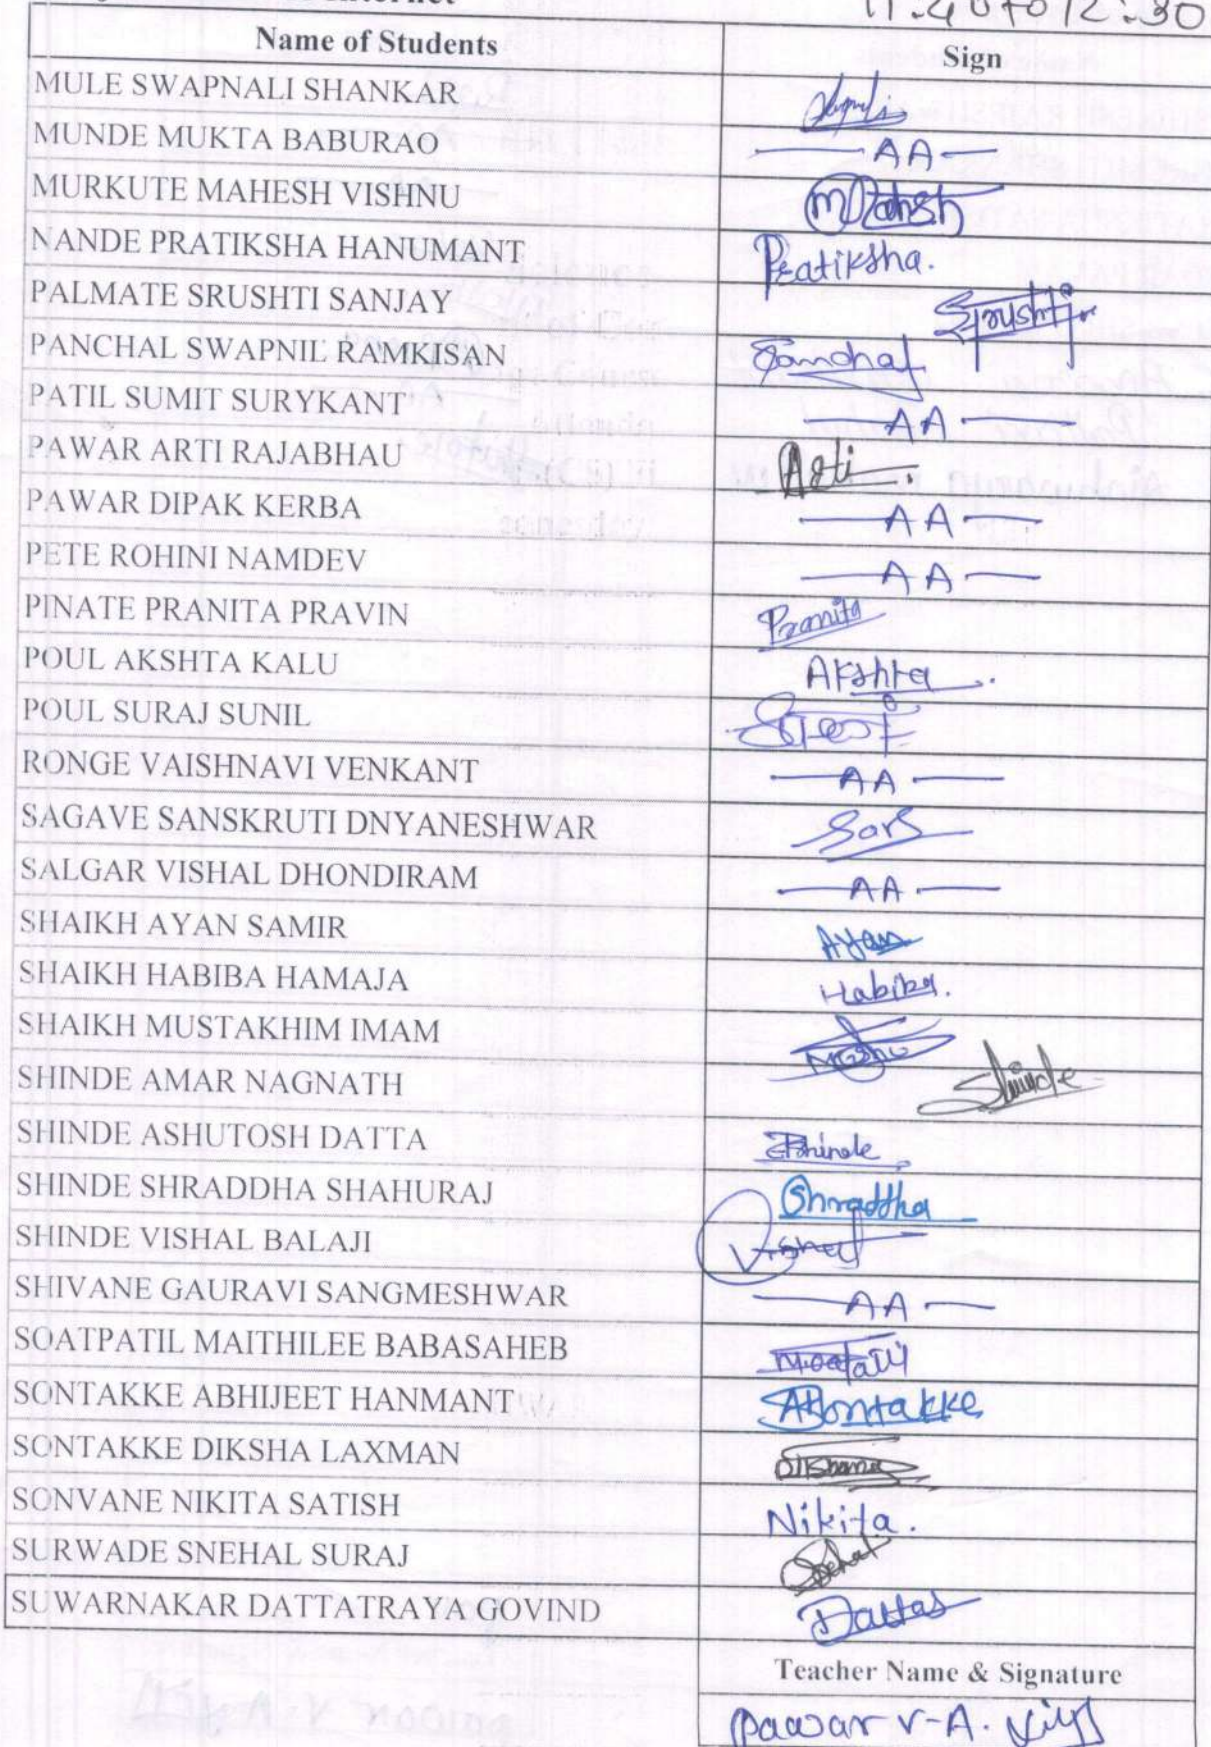 Internet 11.40 to 12.30
Name of Students Sign
MULE SWAPNALI SHANKAR
MUNDE MUKTA BABURAO — AA —
MURKUTE MAHESH VISHNU Mahesh
NANDE PRATIKSHA HANUMANT Pratiksha.
PALMATE SRUSHTI SANJAY Srushti
PANCHAL SWAPNIL RAMKISAN Panchal
PATIL SUMIT SURYKANT — AA —
PAWAR ARTI RAJABHAU Arti
PAWAR DIPAK KERBA — AA —
PETE ROHINI NAMDEV — AA —
PINATE PRANITA PRAVIN Pranita
POUL AKSHTA KALU Akshta.
POUL SURAJ SUNIL
RONGE VAISHNAVI VENKANT — AA —
SAGAVE SANSKRUTI DNYANESHWAR
SALGAR VISHAL DHONDIRAM — AA —
SHAIKH AYAN SAMIR Ayan
SHAIKH HABIBA HAMAJA Habiba.
SHAIKH MUSTAKHIM IMAM
SHINDE AMAR NAGNATH Shinde
SHINDE ASHUTOSH DATTA
SHINDE SHRADDHA SHAHURAJ Shraddha
SHINDE VISHAL BALAJI Vishal
SHIVANE GAURAVI SANGMESHWAR — AA —
SOATPATIL MAITHILEE BABASAHEB
SONTAKKE ABHIJEET HANMANT ASontakke
SONTAKKE DIKSHA LAXMAN
SONVANE NIKITA SATISH Nikita.
SURWADE SNEHAL SURAJ Snehal
SUWARNAKAR DATTATRAYA GOVIND Dattas
Teacher Name & Signature
Pawar V-A.